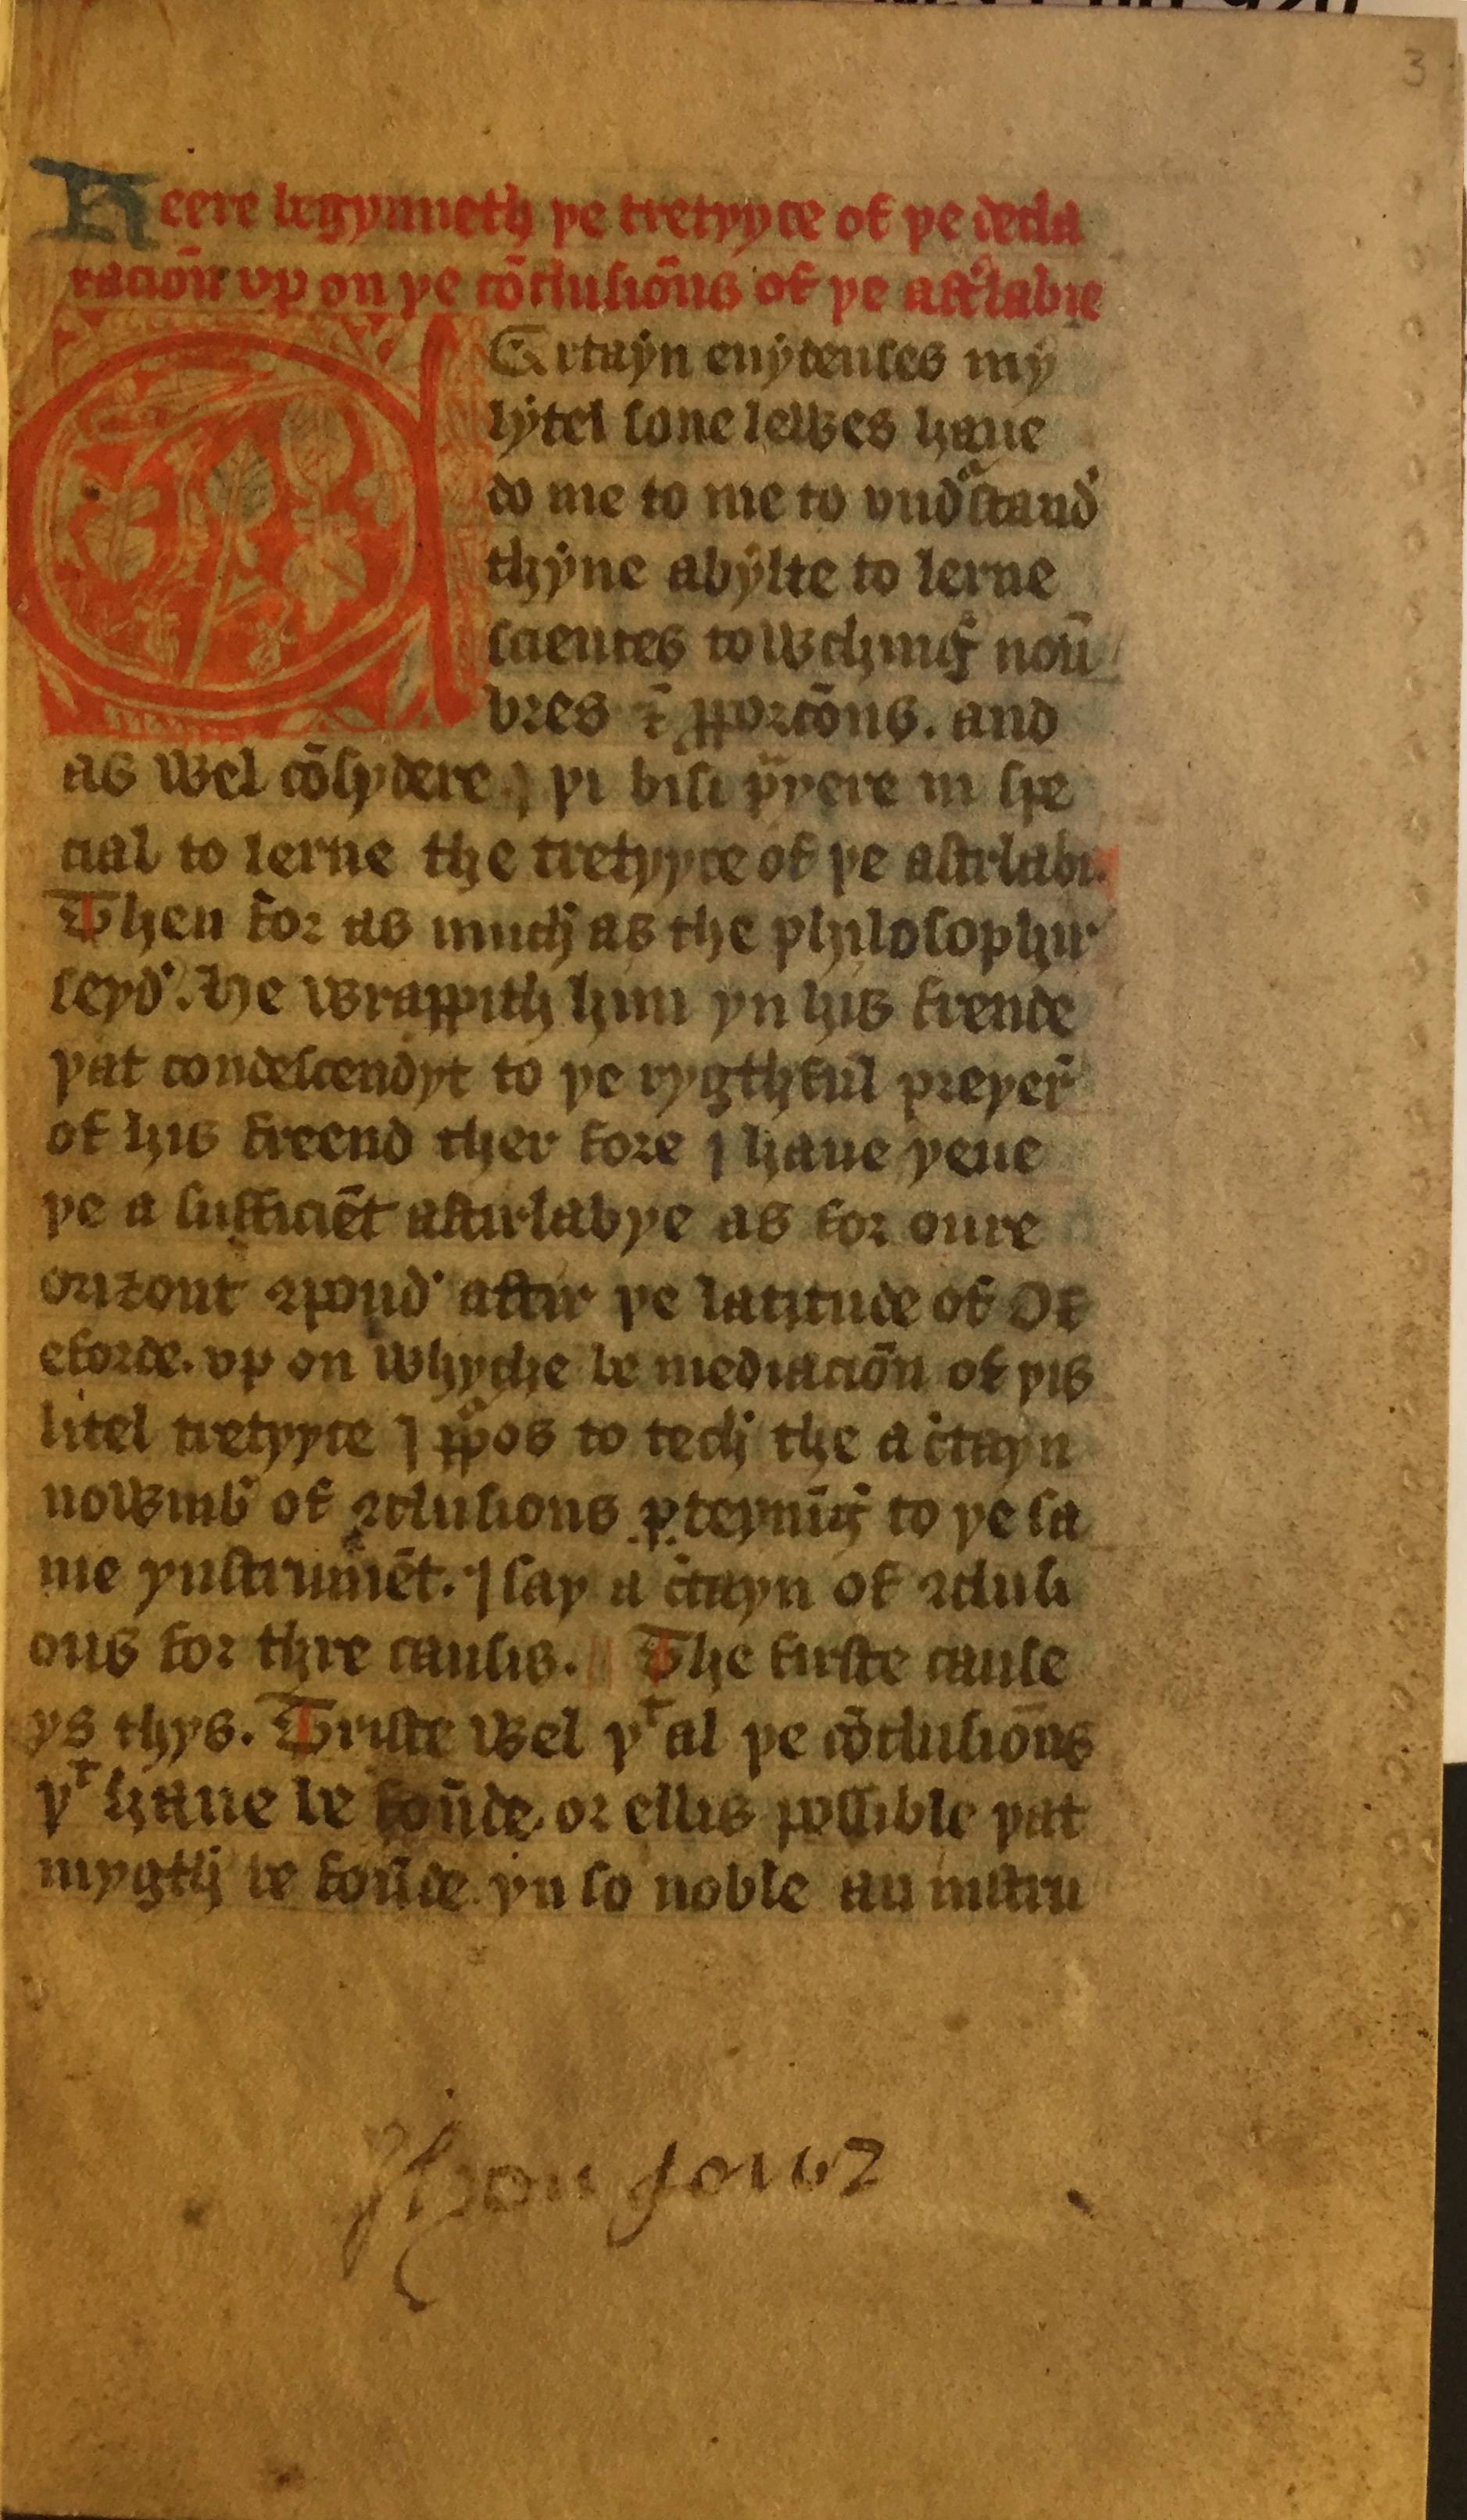 3
Heere begynneth þe tretyyce of þe decla
racion̄ vp on þe cōclusion̄s of þe astͦlabie
CErtayn euydenses my
lytel sone lewes haue
do me to me to vndᵉstand'
thyne abylte to lerne
sciences towchīg noū
bres ⁊̄ ꝓporcōns. and
as wel cōsydere j þi bisi pͥyere in spe
cial to lerne the tretyyce of þe astirlabi.
Then for as much as the philosophur
seyd'. he wrappith him yn his frende
þat condescendyt to þe rygthful preyer̄
of his freend ther fore j haue yeue
þe a sufficiēt astirlabye as for oure
orizont ꝯpound' aftir þe latitude of Ox
eforde. vp on whyche be mediacion̄ of þis
litel tretyyce j ꝓpos to tech the a c̄tayn
nowmb' of ꝯclusions ꝑteynīg to þe sa
me ynstrumēt. j say a c̄tayn of ꝯclusi
ons for thre causis. || The firste cause
ys thys. Triste wel yᵗ al þe cōclusion̄s
yᵗ haue be foūde. or ellis possible þat
mygth be foūde yn so noble an instru